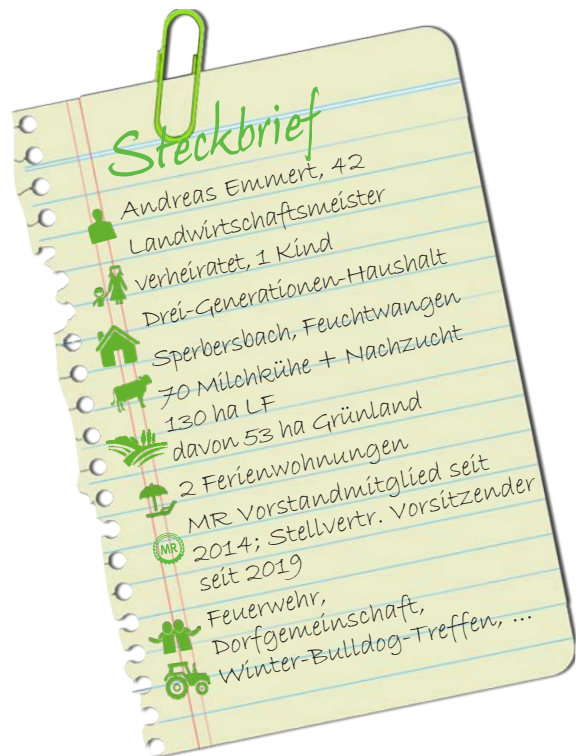 Steckbrief
Andreas Emmert, 42
Landwirtschaftsmeister
verheiratet, 1 Kind
Drei-Generationen-Haushalt
Sperbersbach, Feuchtwangen
70 Milchkühe + Nachzucht
130 ha LF
davon 53 ha Grünland
2 Ferienwohnungen
MR Vorstandmitglied seit
2014; Stellvertr. Vorsitzender
seit 2019
MR
Feuerwehr,
Dorfgemeinschaft,
Winter-Bulldog-Treffen, ...